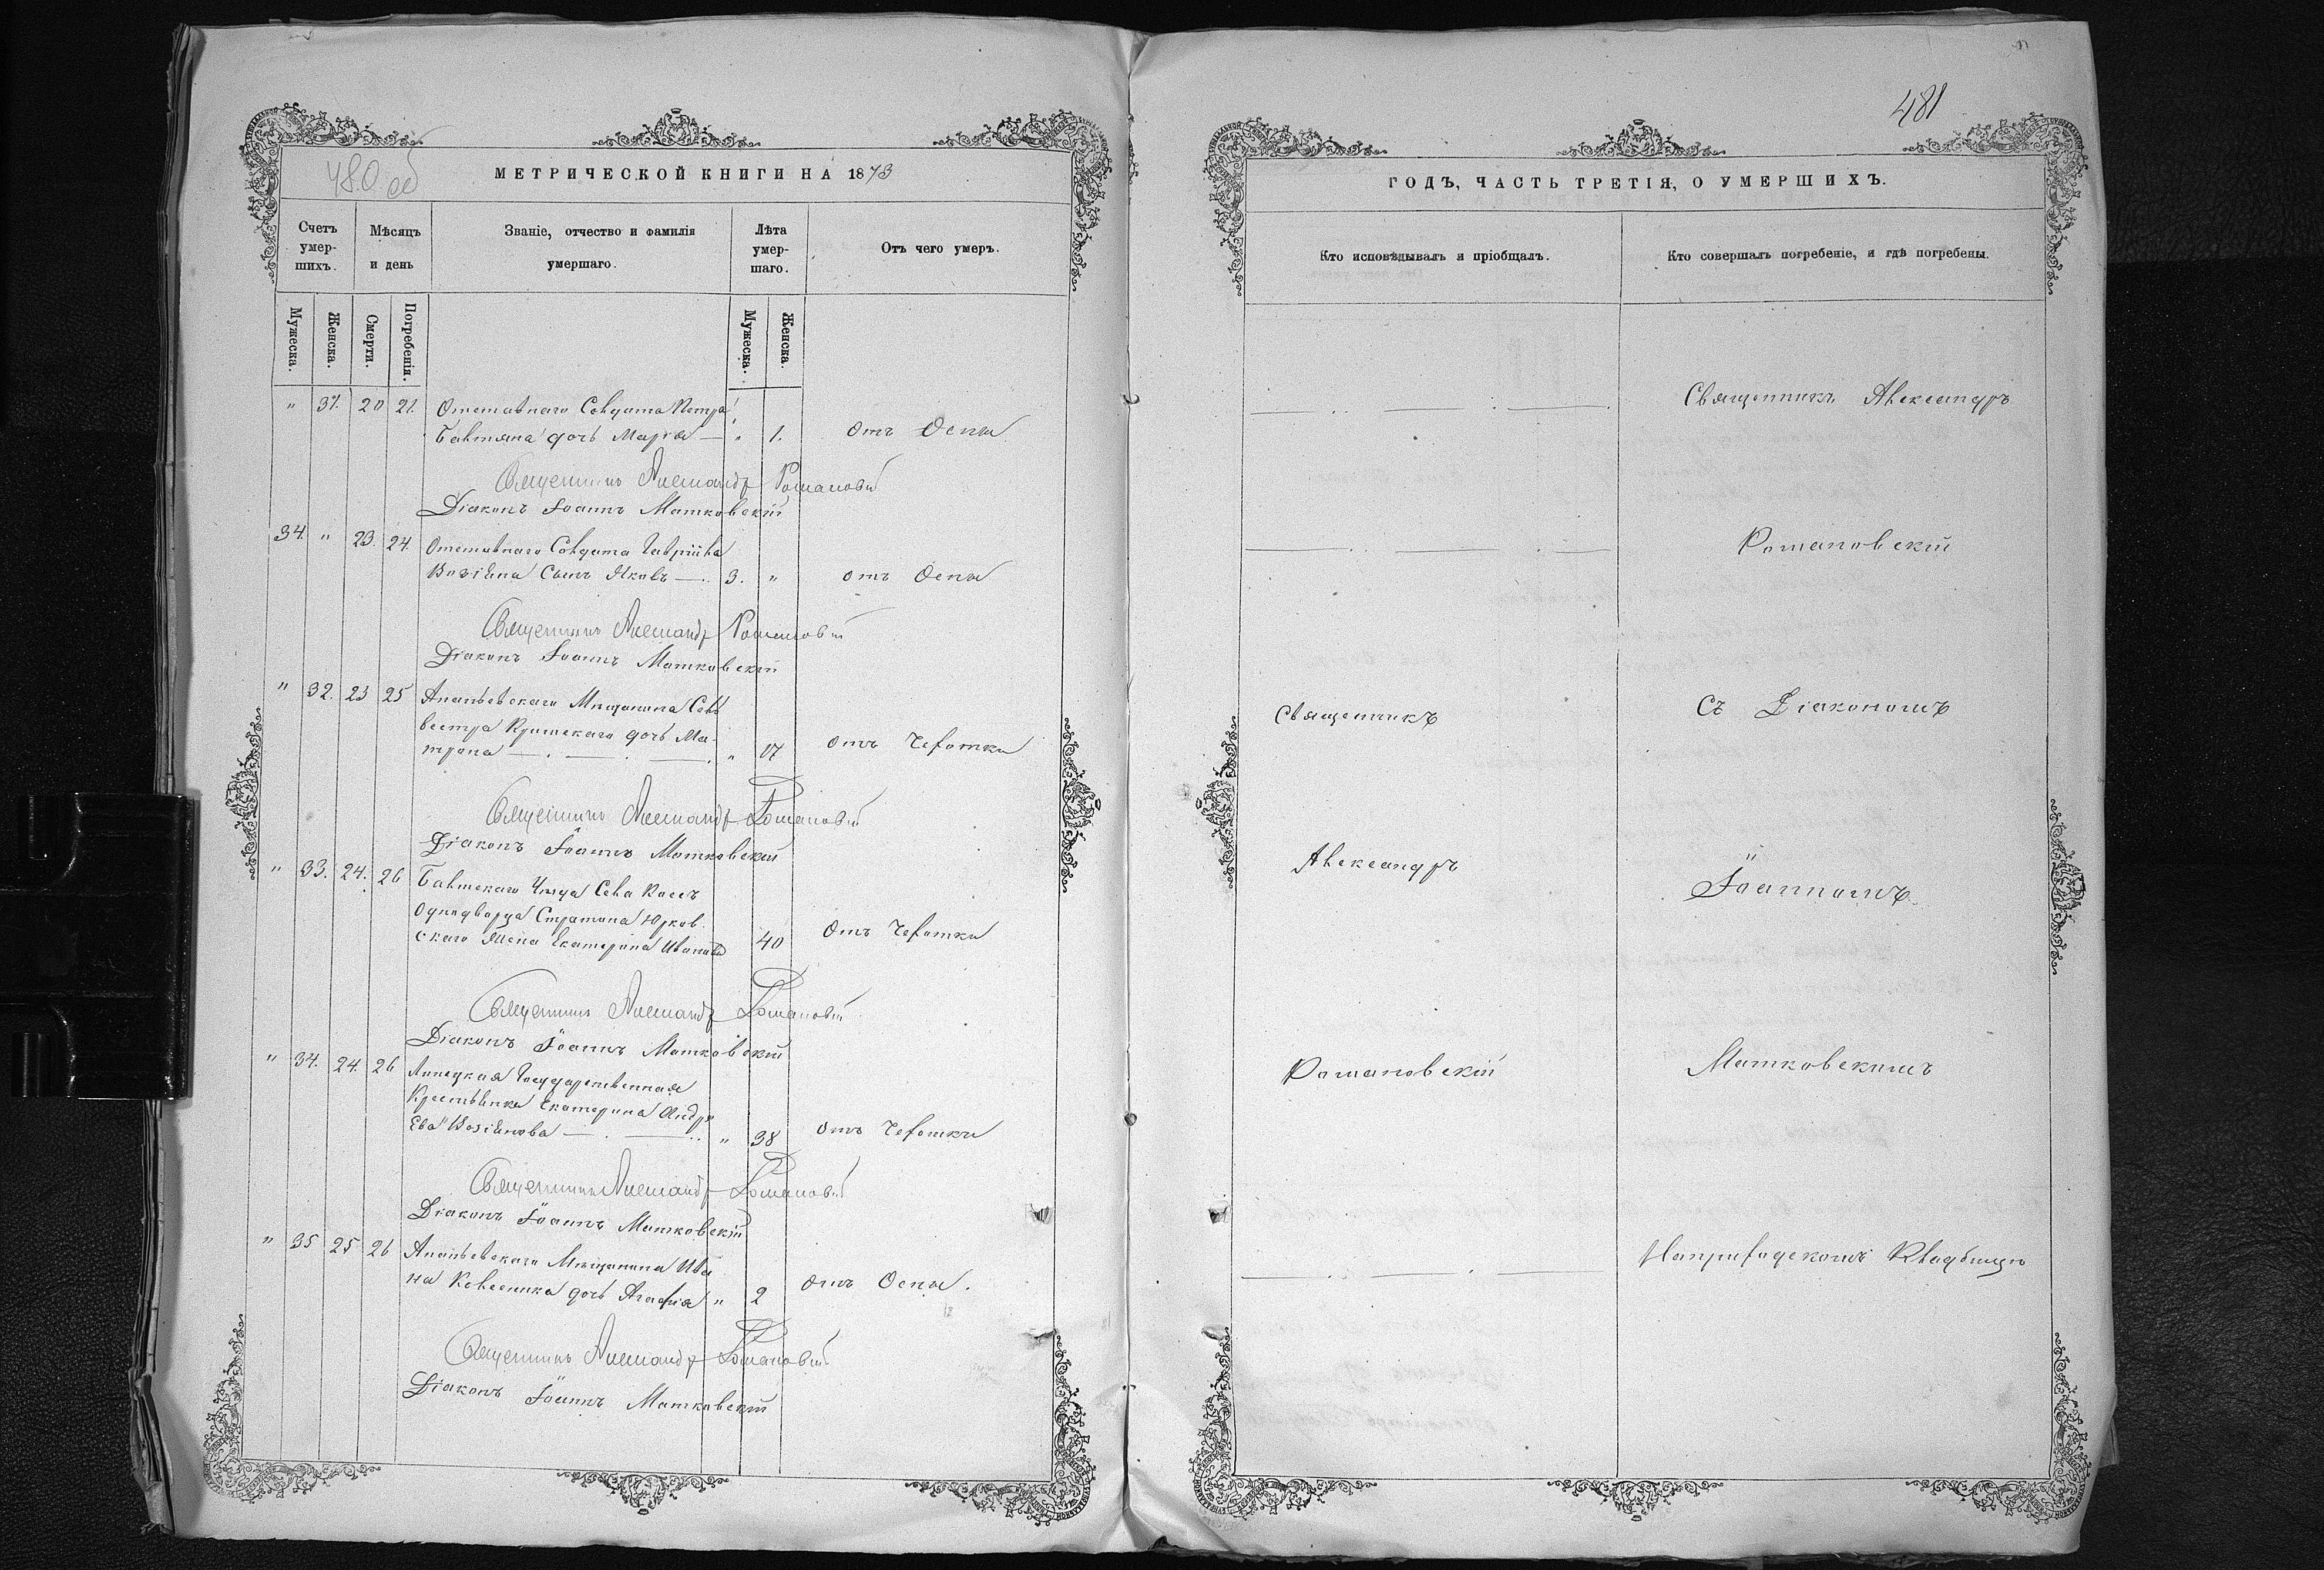 480 об
МЕТРИЧЕСКОЙ КНИГИ НА 1873
Счетъ умер-шихъ.
Мѣсяцъ и день
Званіе, отчество и фамилія умершаго.
Лѣта умер-шаго.
Отъ чего умеръ.
Мужеска.
Женска.
Смерти.
Погребенія.
Мужеска.
Женска.
" 31. 20 21. Отставнаго Солдата Петра
Балтяна дочь Марія — " 1. отъ Оспы
Священникъ Александръ Романовскій
Діаконъ Іоаннъ Матковскій
34. " 23. 24. Отставнаго Солдата Гавріила
Возіяна Сынъ Яковъ — 3. " отъ Оспы
Священникъ Александръ Романовскій
Діаконъ Іоаннъ Матковскій
" 32. 23 25 Ананьевскаго Мѣщанина Сель
вестра Кришскаго дочь Ма-
трона — . — . — . " 17 отъ Чехотки
Священникъ Александръ Романовскій
Діаконъ Іоаннъ Матковскій
" 33. 24. 26 Балтскаго Уѣзда Села
Однодворца Юрков
скаго Жена Екатерина Иванова 40 Отъ Чехотки
Священникъ Александръ Романовскій
Діаконъ Іоаннъ Матковскій
" 34. 24. 26 Липецкая Государственная
Крестьянка Екатерина Андре
ева Возіянова — . — . " 38 отъ Чехотки
Священникъ Александръ Романовскій
Діаконъ Іоаннъ Матковскій
" 35 25 26 Ананьевскаго Мѣщанина Ива
на дочь Агафія " 2 отъ Оспы.
Священникъ Александръ Романовскій
Діаконъ Іоаннъ Матковскій
481
ГОДЪ, ЧАСТЬ ТРЕТІЯ, О УМЕРШИХЪ.
Кто исповѣдывалъ и пріобщалъ.
Кто совершалъ погребеніе, и гдѣ погребены.
Священникъ Александръ
Романовскій
Священникъ
Съ Діакономъ
Александръ
Іоанномъ
Романовскій
Матковскимъ
На приходскомъ Кладбищѣ